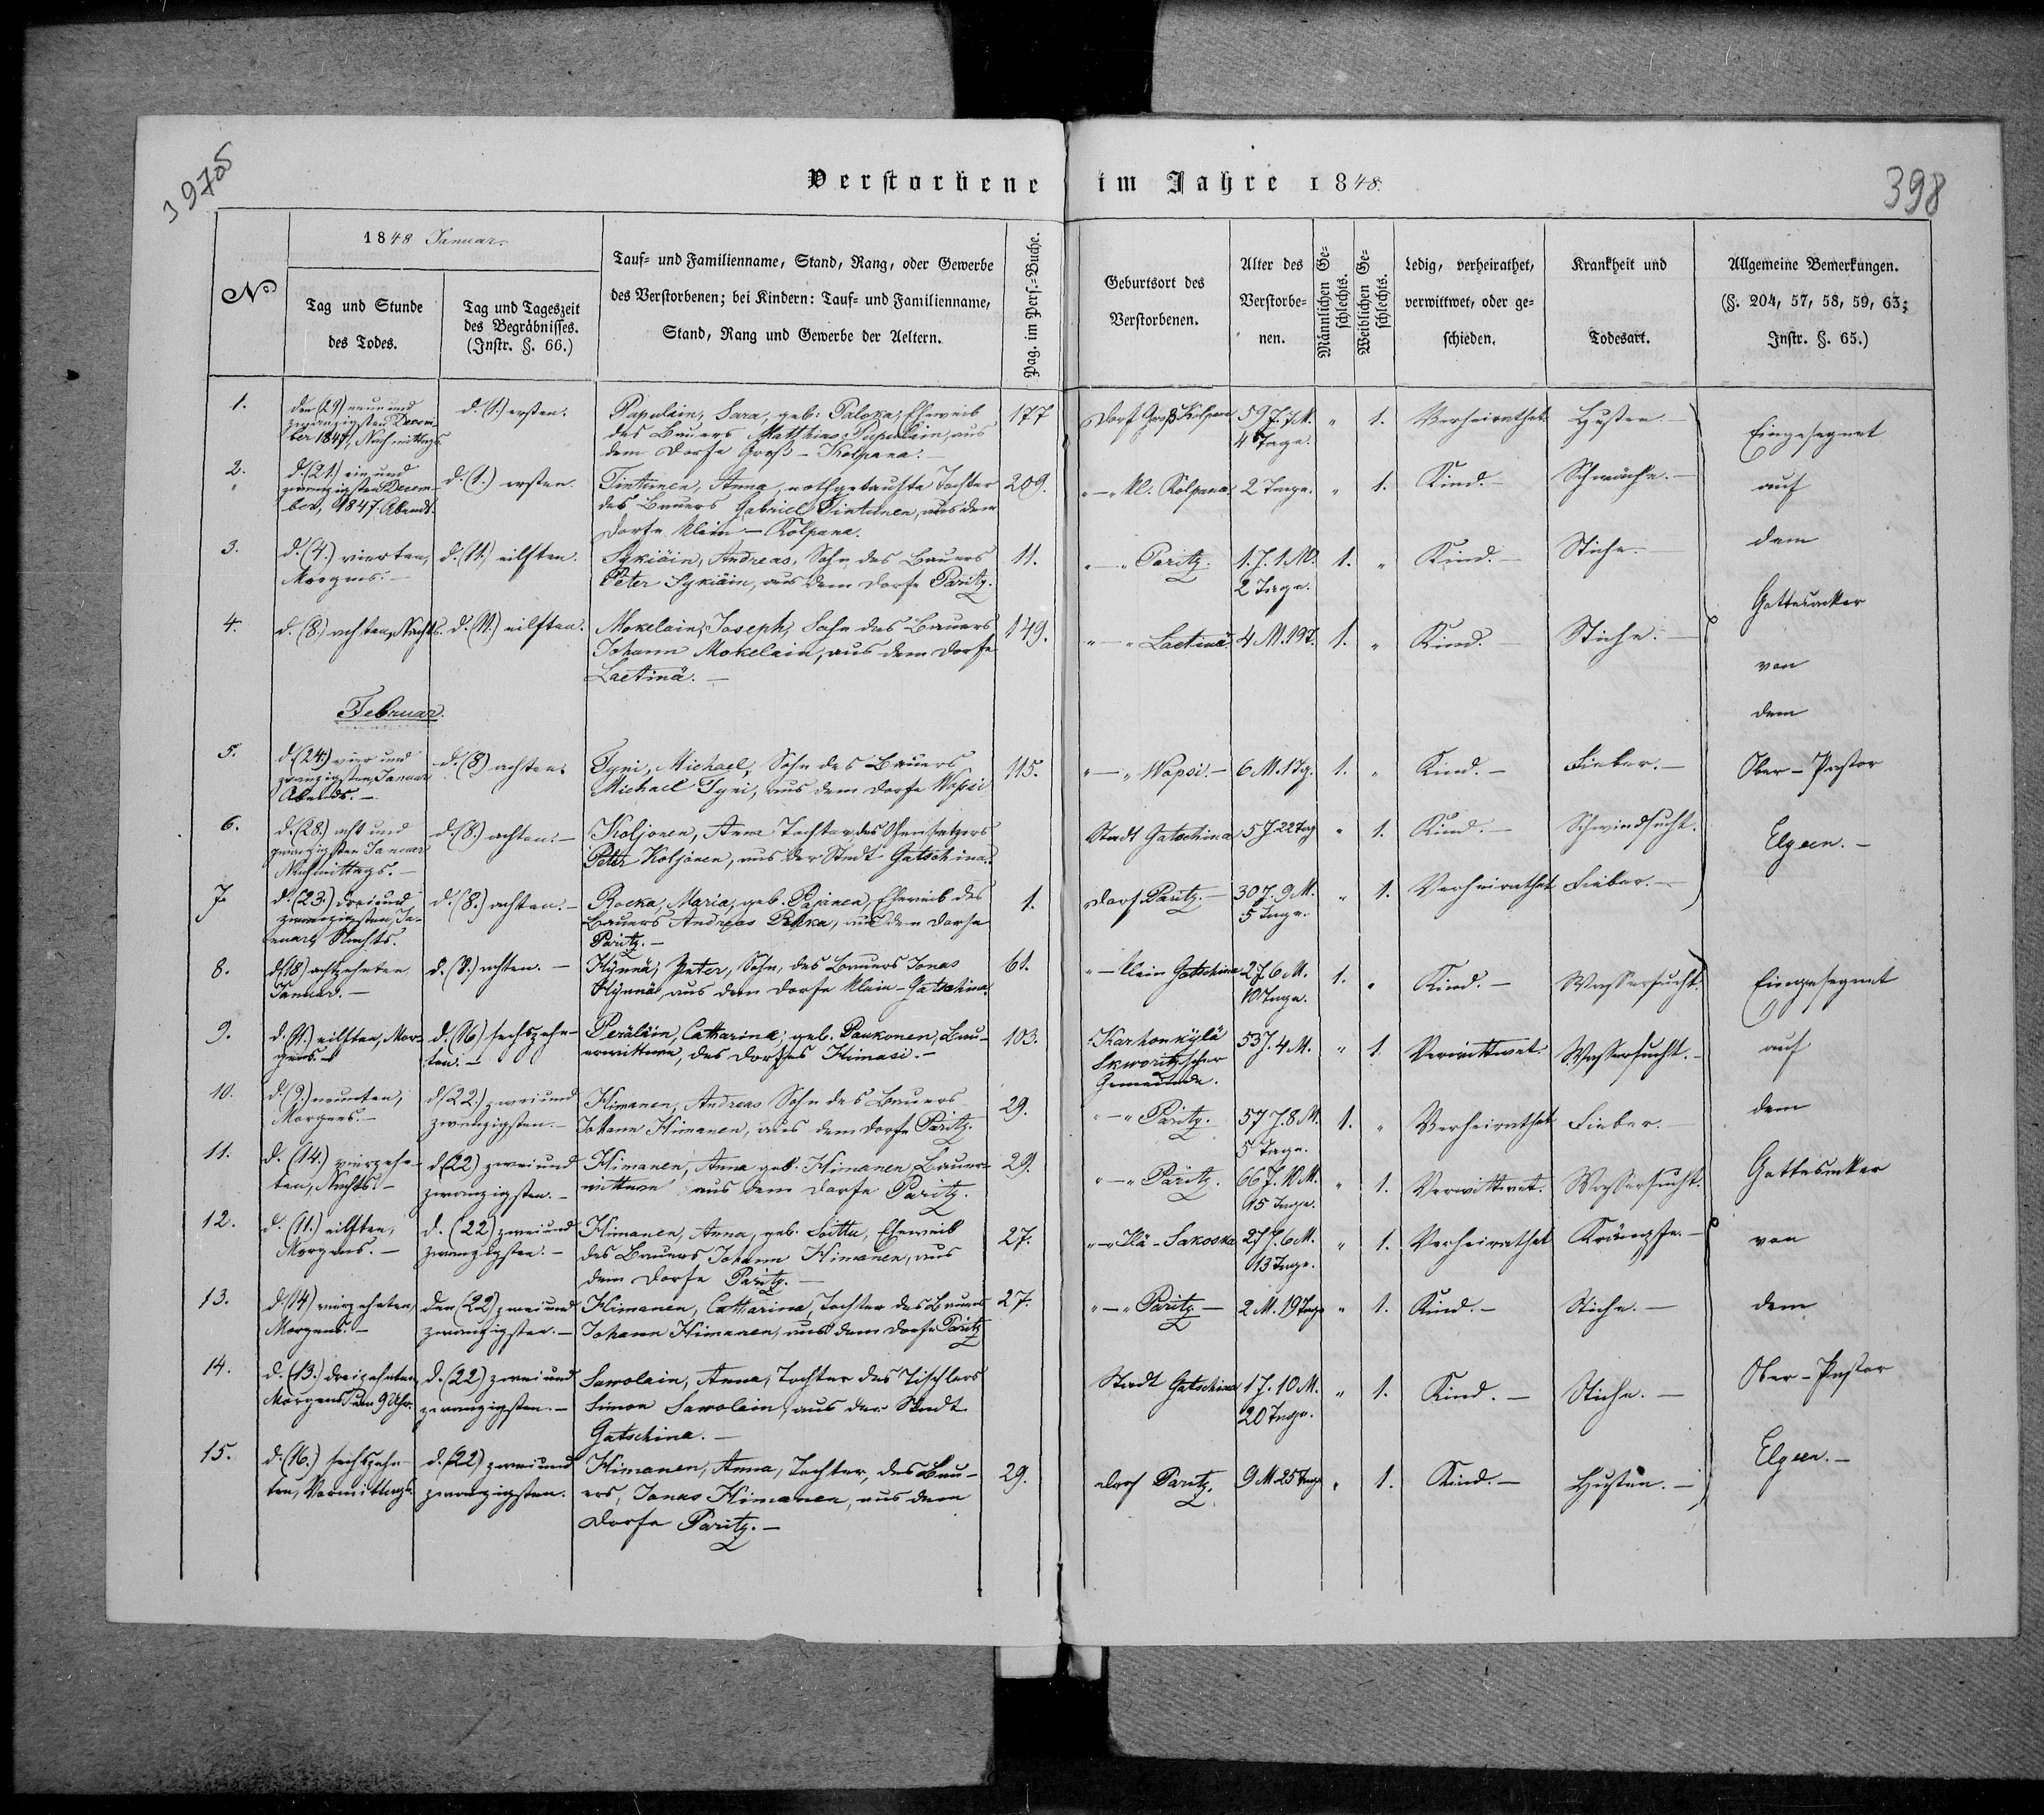 3975
398
Verstorbene im Jahre 1848.
1848 Januar.
No
Tag und Stunde
des Todes.
Tag und Tageszeit
des Begräbnisses.
(Instr. §. 66.)
Tauf- und Familienname, Stand, Rang, oder Gewerbe
des Verstorbenen; bei Kindern: Tauf- und Familienname,
Stand, Rang und Gewerbe der Aeltern.
Pag. im Pers.-Buche.
Geburtsort des
Verstorbenen.
Alter des
Verstorbe-
nen.
Männlichen Ge-
schlechts.
Weiblichen Ge-
schlechts.
Ledig, verheirathet,
verwittwet, oder ge-
schieden.
Krankheit und
Todesart.
Allgemeine Bemerkungen.
(§. 204, 57, 58, 59, 63;
Instr. §. 65.)
1.
den (29) neun und
zwanzigsten Decem-
ber 1847, Nachmittags
d. (1.) ersten.
Papulain, Sara, geb: Paloka, Eheweib
des Bauers Matthias Papulain, aus
dem Dorfe Groß-Kolpana.
177
Dorf Groß Kolpana
59 J. 7 M.
4 Tage.
" 1. Verheirathet Husten.
2.
d. (21.) ein und
zwanzigsten Decem-
ber, 1847. Abends.
d. (1.) ersten.
Tintunen, Anna, nothgetaufte Tochter
des Bauers Gabriel Tintunen, aus dem
Dorfe Klein-Kolpana.
209.
"—" Kl. Kolpana. 2 Tage. " 1. Kind.— Schwäche.—
3.
d. (4.) vierten,
Morgens.—
d. (11.) eilften.
Sykiäin, Andreas, Sohn des Bauers
Peter Sykiäin, aus dem Dorfe Paritz.
11.
"—" Paritz. 1. J. 1. M.
2 Tage.
1. " Kind.— Stiche.—
4.
d. (8.) achten, Nachts. d. (11.) eilften.
Mokelain, Joseph, Sohn des Bauers
Johann Mokelain, aus dem Dorfe
Laetinä.—
149.
" " Laetinä. 4 M. 19 T. 1. " Kind.— Stiche.—
Februar.
5.
d. (24.) vier und
zwanzigsten, Januar
Abends.—
d. (8) achten.
Tyni, Michael, Sohn des Bauers
Michael Tyni, aus dem Dorfe Wapsi
115.
"—" Wapsi.— 6 M. 1 Tg. 1. " Kind.— Fieber.—
6.
d. (28.) acht und
zwanzigsten Januar
Nachmittags.—
d. (8.) achten.—
Koljonen, Anna Tochter des Ofensetzers
Peter Koljonen, aus der Stadt Gatschina.
Stadt Gatschina 5 J. 22 Tag " 1. Kind.— Schwindsucht.
7.
d. (23.) drei und
zwanzigsten, Ja-
nuar, Nachts.
d. (8.) achten.—
Rocka, Maria, geb. Pajanen, Eheweib des
Bauers Andreas Rocka, aus dem Dorfe
Paritz.—
1.
Dorf Paritz.— 30 J. 9 M.
5 Tage.
" 1. Verheirathet Fieber.—
8.
d. (18) achtzehnten
Januar.—
d. (8.) achten.—
Hynnä, Peter, Sohn, des Bauers Jonas
Hynnä, aus dem Dorfe Klein-Gatschina.
61.
"— Klein Gatschina 2 J. 6 M.
10 Tage.
1. " Kind.— Wassersucht.
9.
d. (11.) eilften, Mor-
gens.—
d. (16) sechszehn-
ten.—
Peräläin, Catharina, geb. Paukonen, Bau-
erwittwe, des Dorfes Himasi.—
103.
Karhonkylä
Skworitzscher
Gemeinde.
53 J. 4 M. " 1. Verwittwet. Wassersucht.—
10.
d. (9.) neunten,
Morgens.—
d. (22.) zwei und
zwanzigsten.—
Himanen, Andreas Sohn des Bauers
Johann Himanen, aus dem Dorfe Paritz.
29.
"—" Paritz. 57 J. 8 M.
5 Tage.
1. " Verheirathet Fieber.—
11.
d. (14.) vierzehn-
ten, Nachts.—
d. (22) zwei und
zwanzigsten.—
Himanen, Anna geb. Himanen, Bauer-
wittwe aus dem Dorfe Paritz.
29.
"—" Paritz. 66 J. 10 M.
15 Tage.
" 1. Verwittwet. Wassersucht.
12.
d. (11.) eilften,
Morgens.—
d. (22) zwei und
zwanzigsten.—
Himanen, Anna, geb. Soittu, Eheweib
des Bauers Johann Himanen, aus
dem Dorfe Paritz.—
27.
"—" Ilä-Sakoska 27 J. 6 M.
13 Tage.
" 1. Verheirathet Krämpfe.—
13.
d. (14) vierzehnten,
Morgens.—
den (22) zwei und
zwanzigsten.—
Himanen, Catharina, Tochter des Bauers
Johann Himanen, aus dem Dorfe Paritz
27.
"—" Paritz— 2 M. 19 Tage " 1. Kind.— Stiche.—
14.
d. (13.) dreizehnten
Morgens um 9 Uhr.
d. (22) zwei und
zwanzigsten.—
Sawolain, Anna, Tochter des Tischlers
Simon Sawolain, aus der Stadt
Gatschina.—
Stadt Gatschina 1 J. 10 M.
20 Tage.
" 1. Kind.— Stiche.—
15.
d. (16.) sechszehn-
ten, Vormittags.
d. (22) zwei und
zwanzigsten.
Himanen, Anna, Tochter, des Bau-
ers, Jonas Himanen, aus dem
Dorfe Paritz.—
29.
Dorf Paritz. 9 M. 25 Tage " 1. Kind.— Husten.—
Eingesegnet
auf
dem
Gottesacker
von
dem
Ober-Pastor
Elgeen.—
Eingesegnet
auf
dem
Gottesacker
von
dem
Ober-Pastor
Elgeen.—